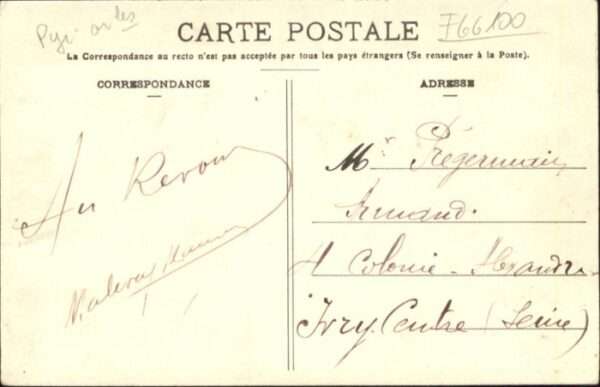 Pyr orles
F66100
CARTE POSTALE
La Correspondance au recto n'est pas acceptée par tous les pays étrangers (Se renseigner à la Poste).
CORRESPONDANCE
Au Revoir
ADRESSE
Mr Prégermain
Armand.
4 Colonie - Alexandre
Ivry. Centre (Seine)